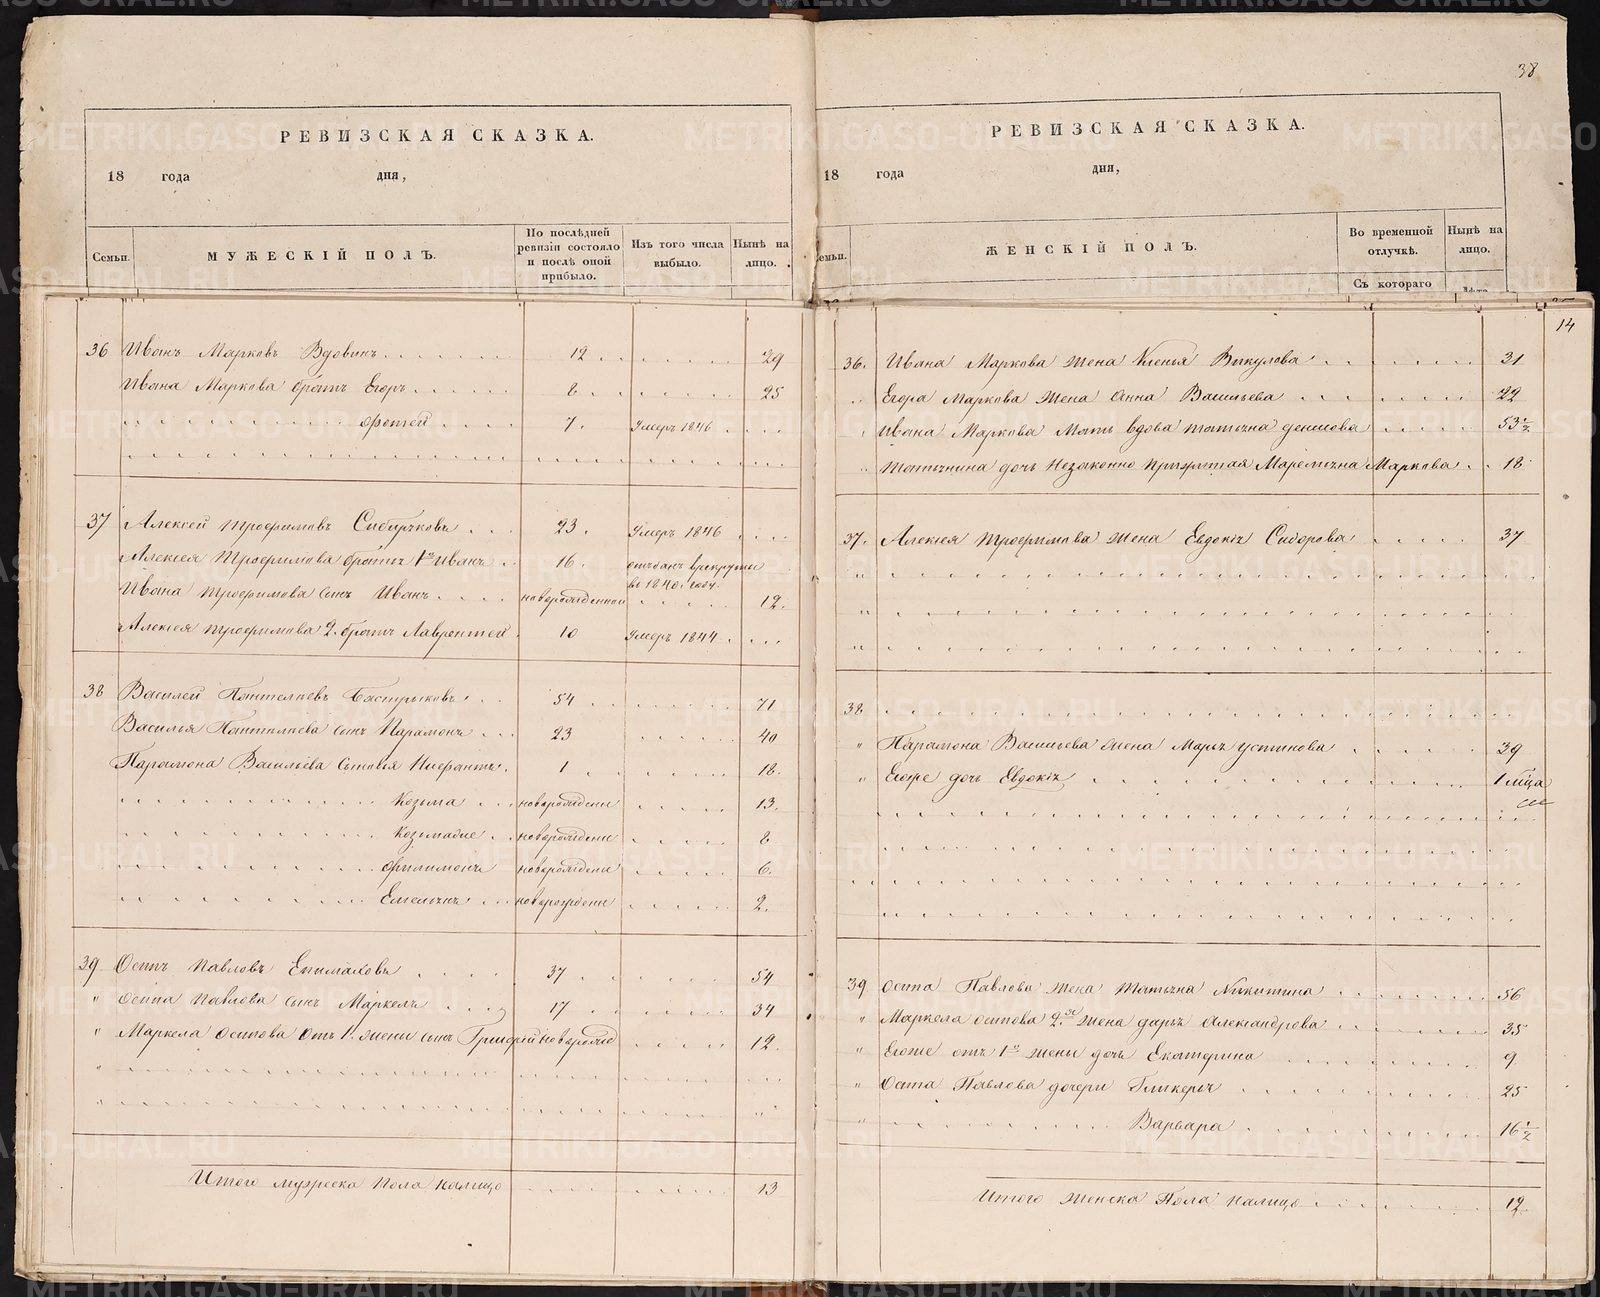 38
РЕВИЗСКАЯ СКАЗКА.
18 года дня,
Семьи.
МУЖЕСКІЙ ПОЛЪ.
По послѣдней ревизіи состояло и послѣ оной прибыло.
Изъ того числа выбыло.
Нынѣ на лицо.
36 Иванъ Марковъ Вдовинъ 12 29
Ивана Маркова братъ Егоръ 8 25
Фотей 7. Умеръ 1846
37 Алексей Трофимовъ Сибиряковъ 23. Умеръ 1846
Алексея Трофимова братъ 1й Иванъ 16. отданъ врекруты
в 1840. году
Ивана Трофимова сынъ Иванъ новорожденной 12.
Алексея Трофимова 2. братъ Лаврентей 10 Умеръ 1844
38 Василей Пантелеевъ Бастрыковъ 54 71
Василья Пантелеева сынъ Парамонъ 23 40
Парамона Васильева сыновья 1 18
Козьма новорожденн 13.
новорожденн 8
Филимонъ новорожденн 6.
Емельянъ новорожденн 2.
39 Осипъ Павловъ Епимаховъ 37 54
" Осипа Павлова сынъ Маркелъ 17 34
" Маркела Осипова отъ 1. жены сынъ Григорій новорожд 12.
Итого мужеска пола налицо 13
РЕВИЗСКАЯ СКАЗКА.
18 года дня,
Семьи.
ЖЕНСКІЙ ПОЛЪ.
Во временной отлучкѣ.
Нынѣ на лицо.
Съ котораго
Лѣта
14
36. Ивана Маркова жена Викулова 31
" Егора Маркова жена Анна Васильева 22
" Ивана Маркова мать вдова Татьяна Денисова 53 1/2
" Татьянина дочь незаконно прижитая Маркова 18
37. Алексея Трофимова жена Евдокія Сидорова 37
38
" Парамона Васильева жена Марья Устинова 39
" Егоже дочь Евдокія 1 мѣсяца
39 Осипа Павлова жена Татьяна Никитина 56
" Маркела Осипова 2.я жена Дарья Александрова 35
" Егоже отъ 1й жены дочь Екатерина 9
" Осипа Павлова дочери Гликерья 25
" Варвара 16 1/2
Итого женска пола налицо 12
METRIKI.GASO-URAL.RU